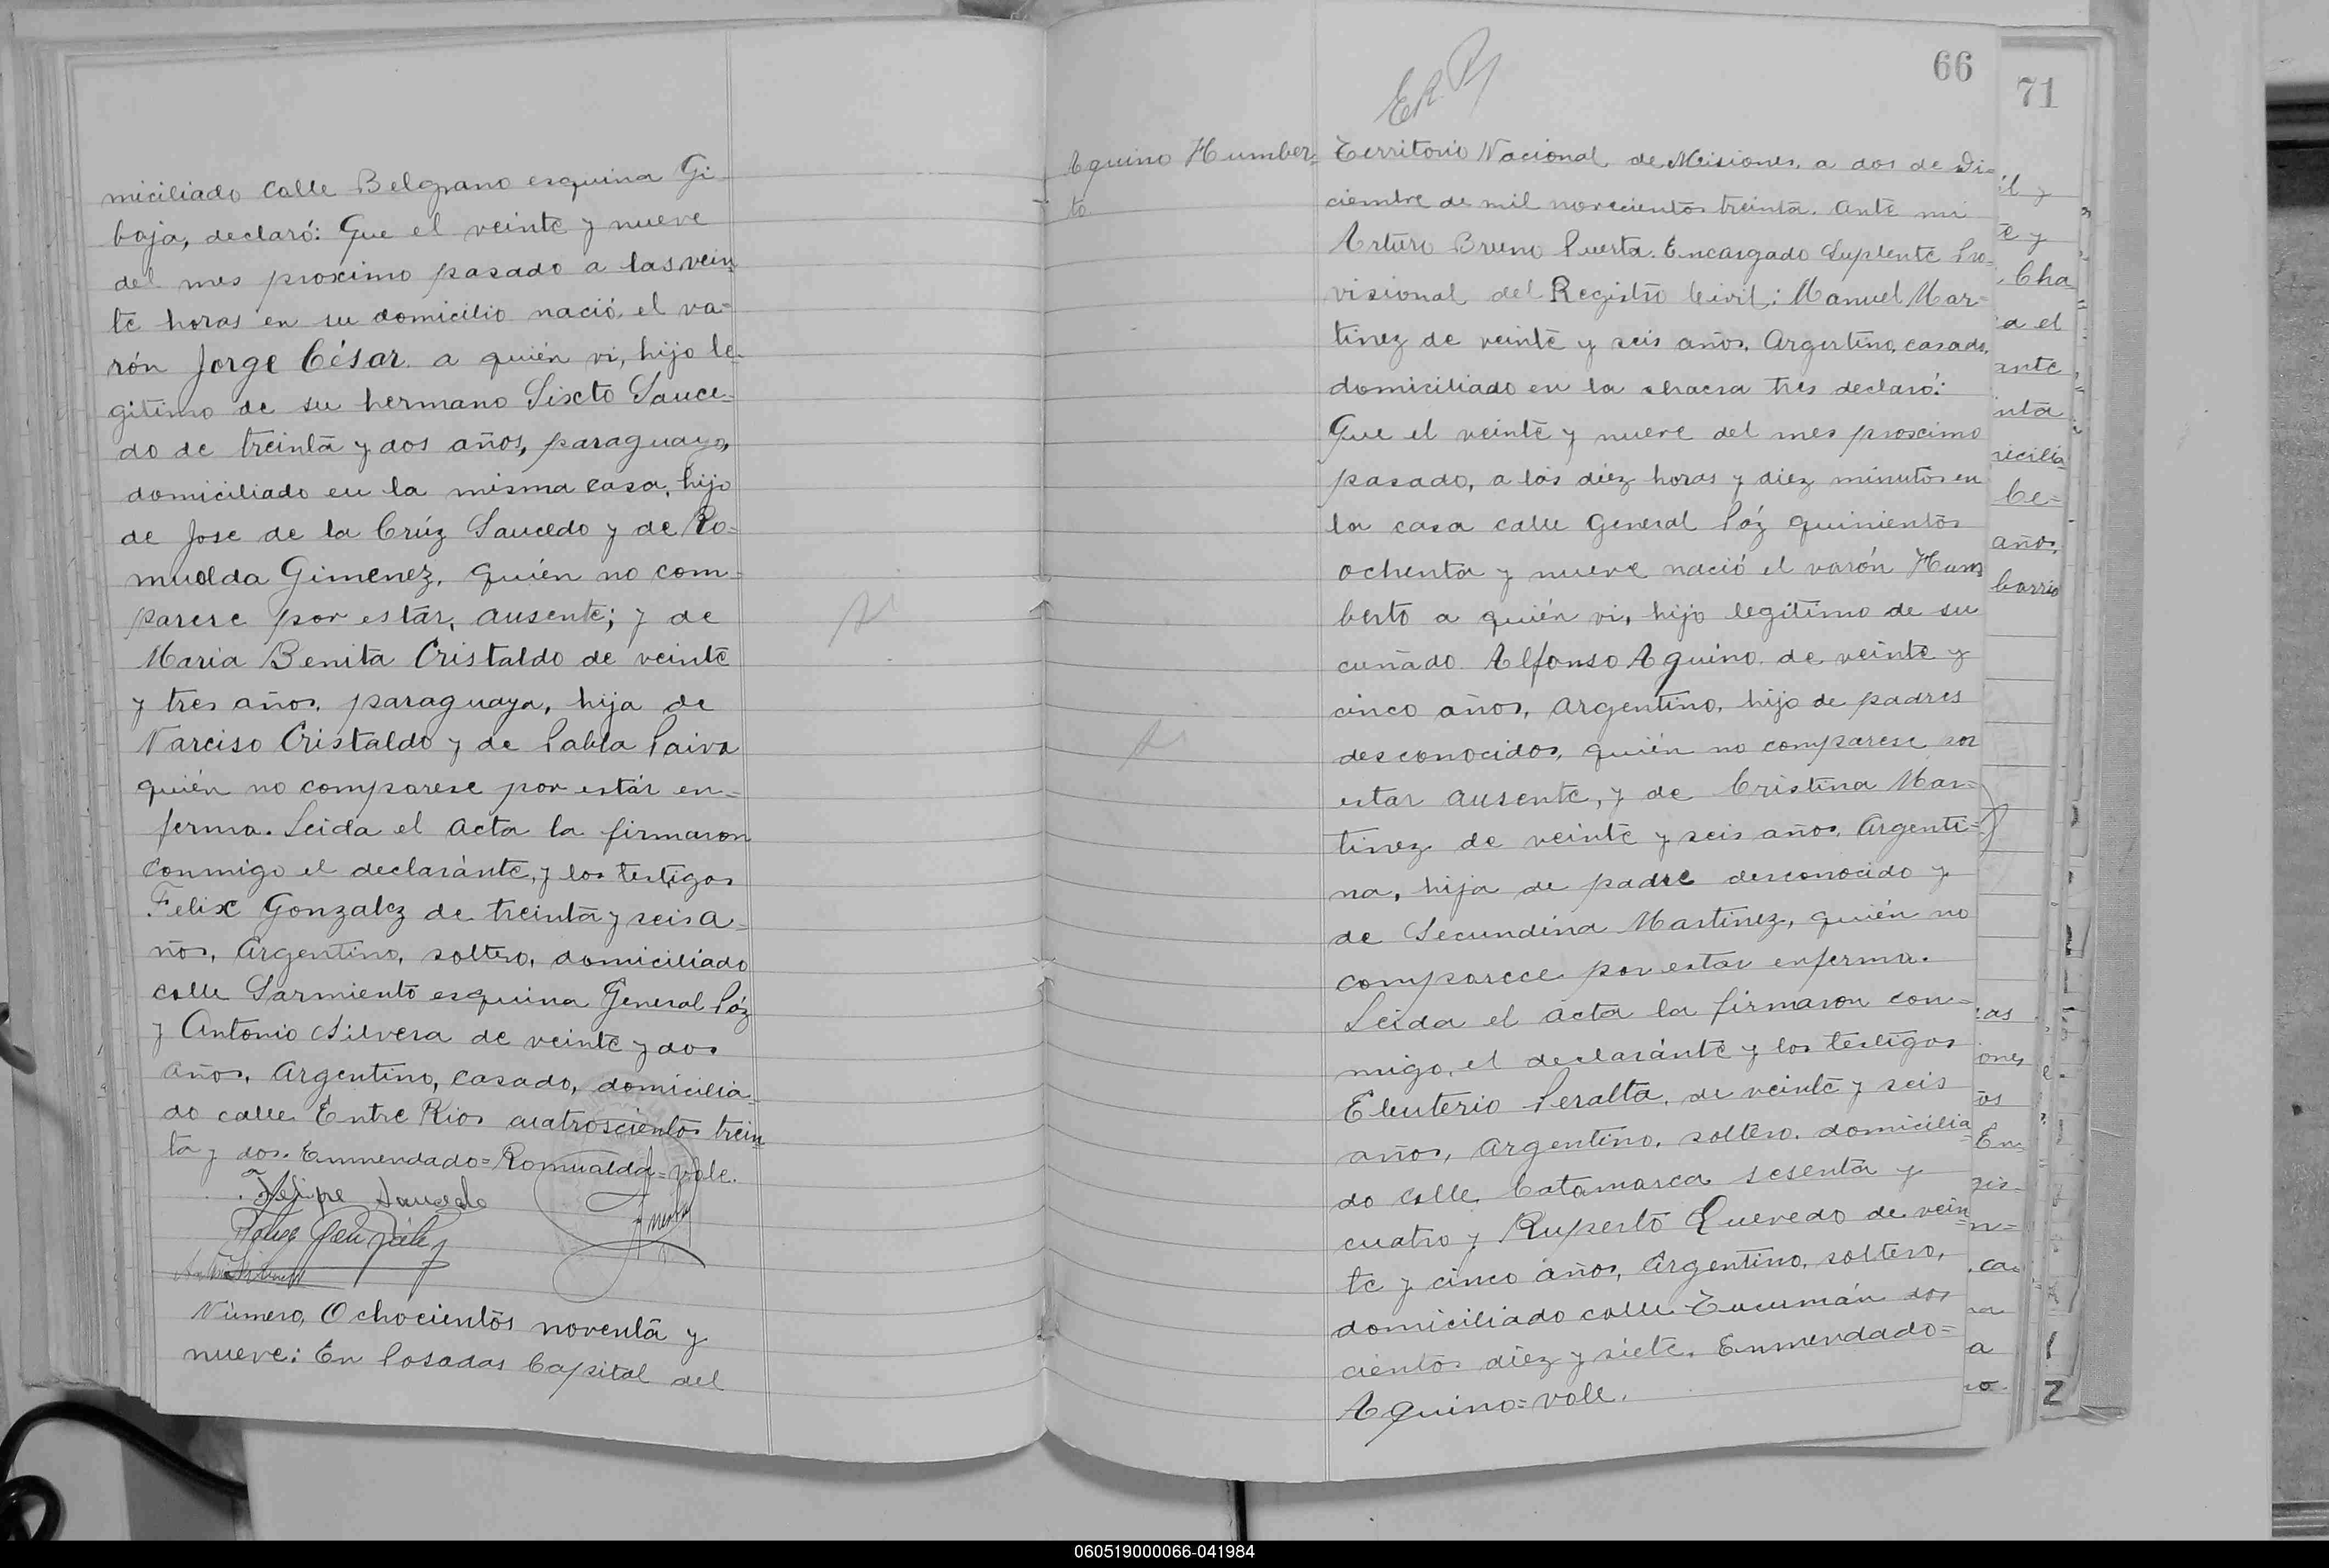 miciliado calle Belgrano esquina Gi-
baja, declaró: Que el veinte y nueve
del mes proximo pasado a las vein
te horas en su domicilio nació, el va=
rón Jorge César. a quién vi, hijo le-
gitimo de su hermano Sixto Sauce=
do de treinta y dos años, paraguayo,
domiciliado en la misma casa, hijo
de Jose de la Crúz Saucedo y de Ro=
mualda Gimenez, quién no com=
parese por estár, ausente; y de
Maria Benita Cristaldo de veinte
y tres años, paraguaya, hija de
Narciso Cristaldo y de Pabla Paiva
quién no comparese por estár en=
ferma. Leida el acta la firmaron
conmigo el declaránte, y los testigos
Felix Gonzalez de treinta y seis a=
ños, Argentino, soltero, domiciliado
calle Sarmiento esquina General Páz
y Antonio Silvera de veinte y dos
años, Argentino, casado, domicilia=
do calle Entre Rios cuatroscientos trein
ta y dos. Enmendado=Romualda=vale.
Felipe Saucedo
Número, Ochocientos noventa y
nueve: En Posadas Capital del
66
71
Aquino Humber=
to.
Territorio Nacional de Misiones, a dos de Di=
ciembre de mil novecientos treinta. Ante mi
Arturo Bruno Puerta. Encargado Suplente Pro=
visional del Registro Civil: Manuel Mar=
tinez de veinte y seis años, Argentino, casado,
domiciliado en la chacra tres declaró:
Que el veinte y nueve del mes proximo
pasado, a las diéz horas y diez minutos en
la casa calle General Páz quinientos
ochenta y nueve nació el varón Hum
berto a quién vi, hijo legitimo de su
cuñado Alfonso Aquino de veinte y
cinco años, Argentino, hijo de padres
desconocidos, quién no comparese por
estar ausente, y de Cristina Mar=
tinez de veinte y seis años, Argenti=
na, hija de padre desconocido y
de Secundina Martinez, quién no
comparece por estar enferma.
Leida el acta la firmaron con=
migo, el declaránte y los testigos
Eleuterio Peralta, de veinte y seis
años, Argentino, soltero, domicilia=
do calle Catamarca sesenta y
cuatro y Ruperto Quevedo de vein
te y cinco años, Argentino, soltero,
domiciliado calle Tucumán dos
cientos diéz y siete. Enmendado=
Aquino=vale.
060519000066-041984